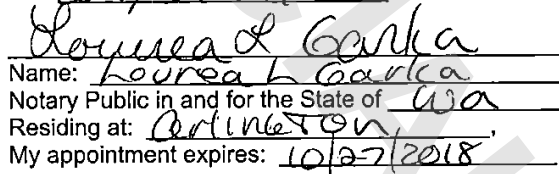 Lourea L Garka
Name: Lourea L Garka
Notary Public in and for the State of Wa
Residing at: Arlington,
My appointment expires: 10/27/2018